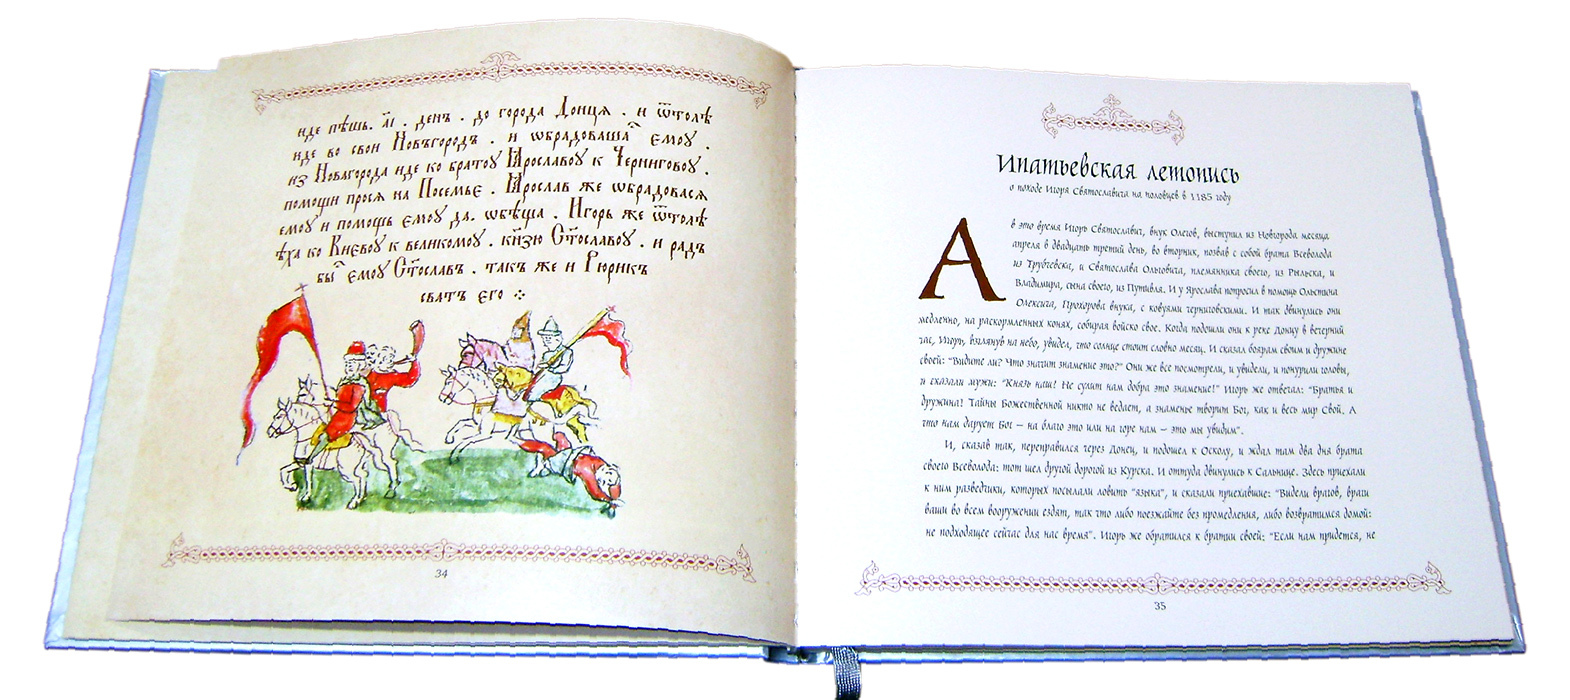 иде пѣшь. а҃і . денъ . до города Донця . и ѿтолѣ
иде во свои Новъгородъ . и ѡбрадовашаⷭ҇ ємоу .
из Новагорода иде ко братоу Ꙗрославоу к Черниговоу .
помощи прося на Посемьє . Ꙗрослав же ѡбрадовася
ємоу и помощь ємоу да. ѡбѣща . Игорь же ѿтолѣ
ѣха ко Києвоу к великомоу . кн҃зю Ст҃ославоу . и радъ
быⷭ҇ ємоу Ст҃ославъ . такъ же и Рюрикъ
сватъ єго
34
Ипатьевская летопись
о походе Игоря Святославича на половцев в 1185 году
А в это время Игорь Святославич, внук Олегов, выступил из Новгорода месяца
апреля в двадцать третий день, во вторник, позвав с собой брата Всеволода
из Трубчевска, и Святослава Ольговича, племянника своего, из Рыльска, и
Владимира, сына своего, из Путивля. И у Ярослава попросил в помощь Ольстина
Олексича, Прохорова внука, с ковуями черниговскими. И так двинулись они
медленно, на раскормленных конях, собирая войско свое. Когда подошли они к реке Донцу в вечерний
час, Игорь, взглянув на небо, увидел, что солнце стоит словно месяц. И сказал боярам своим и дружине
своей: "Видите ли? Что значит знамение это?" Они же все посмотрели, и увидели, и понурили головы,
и сказали мужи: "Князь наш! Не сулит нам добра это знамение!" Игорь же отвечал: "Братья и
дружина! Тайны Божественной никто не ведает, а знаменье творит Бог, как и весь мир Свой. А
что нам дарует Бог – на благо это или на горе нам – это мы увидим".
И, сказав так, переправился через Донец, и подошел к Осколу, и ждал там два дня брата
своего Всеволода: тот шел другой дорогой из Курска. И оттуда двинулись к Сальнице. Здесь приехали
к ним разведчики, которых посылали ловить "языка", и сказали приехавшие: "Видели врагов, враги
ваши во всем вооружении ездят, так что либо поезжайте без промедления, либо возвратимся домой:
не подходящее сейчас для нас время". Игорь же обратился к братии своей: "Если нам придется, не
35